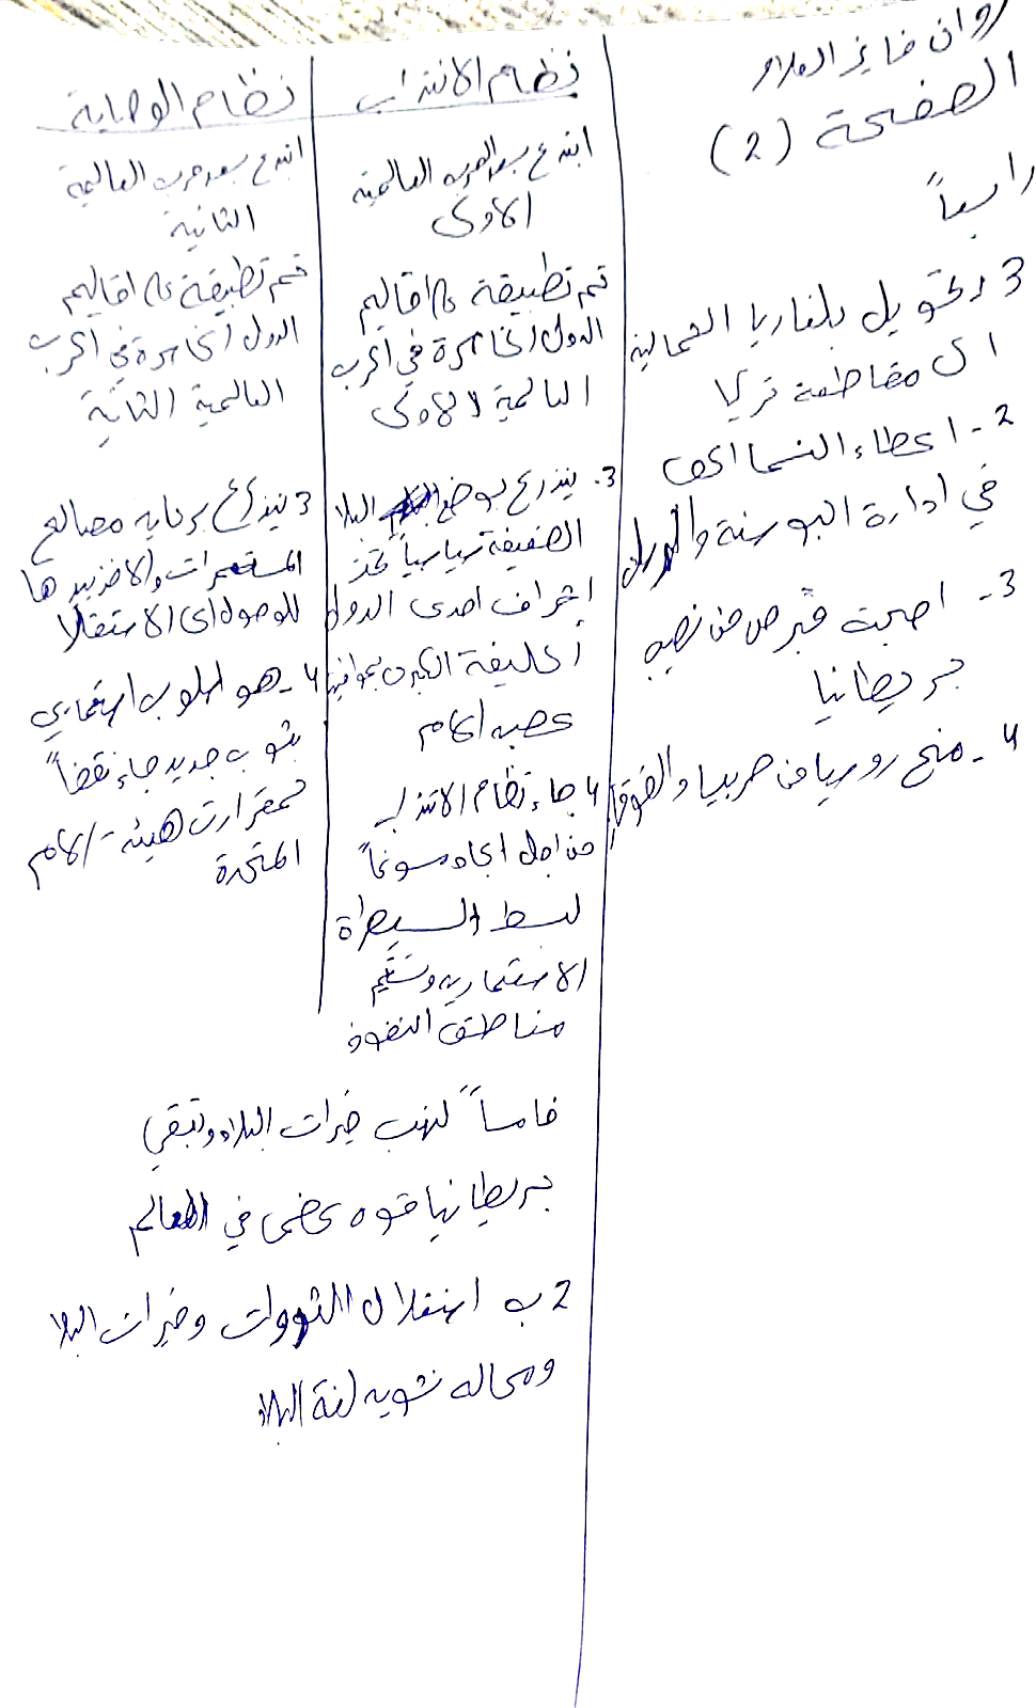 روان فايز
الصفحة (2)
رابعاً
3 د تحويل بلغاريا الشمالية
الى مقاطعة تركيا
2- اعطاء النمسا الحق
في ادارة البوسنة والهرسك
3- اصبحت قبرص من نصيب
بريطانيا
4- منح روسيا من صربيا والقوقاز
نظام الانتداب
ابتدع بعد الحرب العالمية
الاولى
تم تطبيقة على اقاليم
الدول الخاسرة في الحرب
العالمية الاولى
3. يتذرع بوضع البلاد
الضعيفة سياسياً تحت
اشراف احدى الدول
الحليفة الكبرى بموافقة
عصبه الامم
4 جاء نظام الانتداب
من اجل ايجاد مسوغاً
لبسط السيطراة
الاستعماريه وتقسيم
مناطق النفوذ
نظام الوصاية
ابتدع بعد حرب العالمية
الثانية
تم تطبيقة على اقاليم
الدول الخاسرة في الحرب
العالمية الثانية
3 يتذرع برعايه مصالح
المستعمرات والاخذ بيدها
للوصول الى الاستقلال
4- هو اسلوب استعماري
بثوب جديد جاء نقضاً
لمقرارت هيئة الامم
المتحدة
خامساً لنهب خيرات البلاد وتبقى
بريطانيا قوه عظمى في العالم
2 ب استغلال الثروات وخيرات البلاد
ومحاله تشويه لغة البلاد